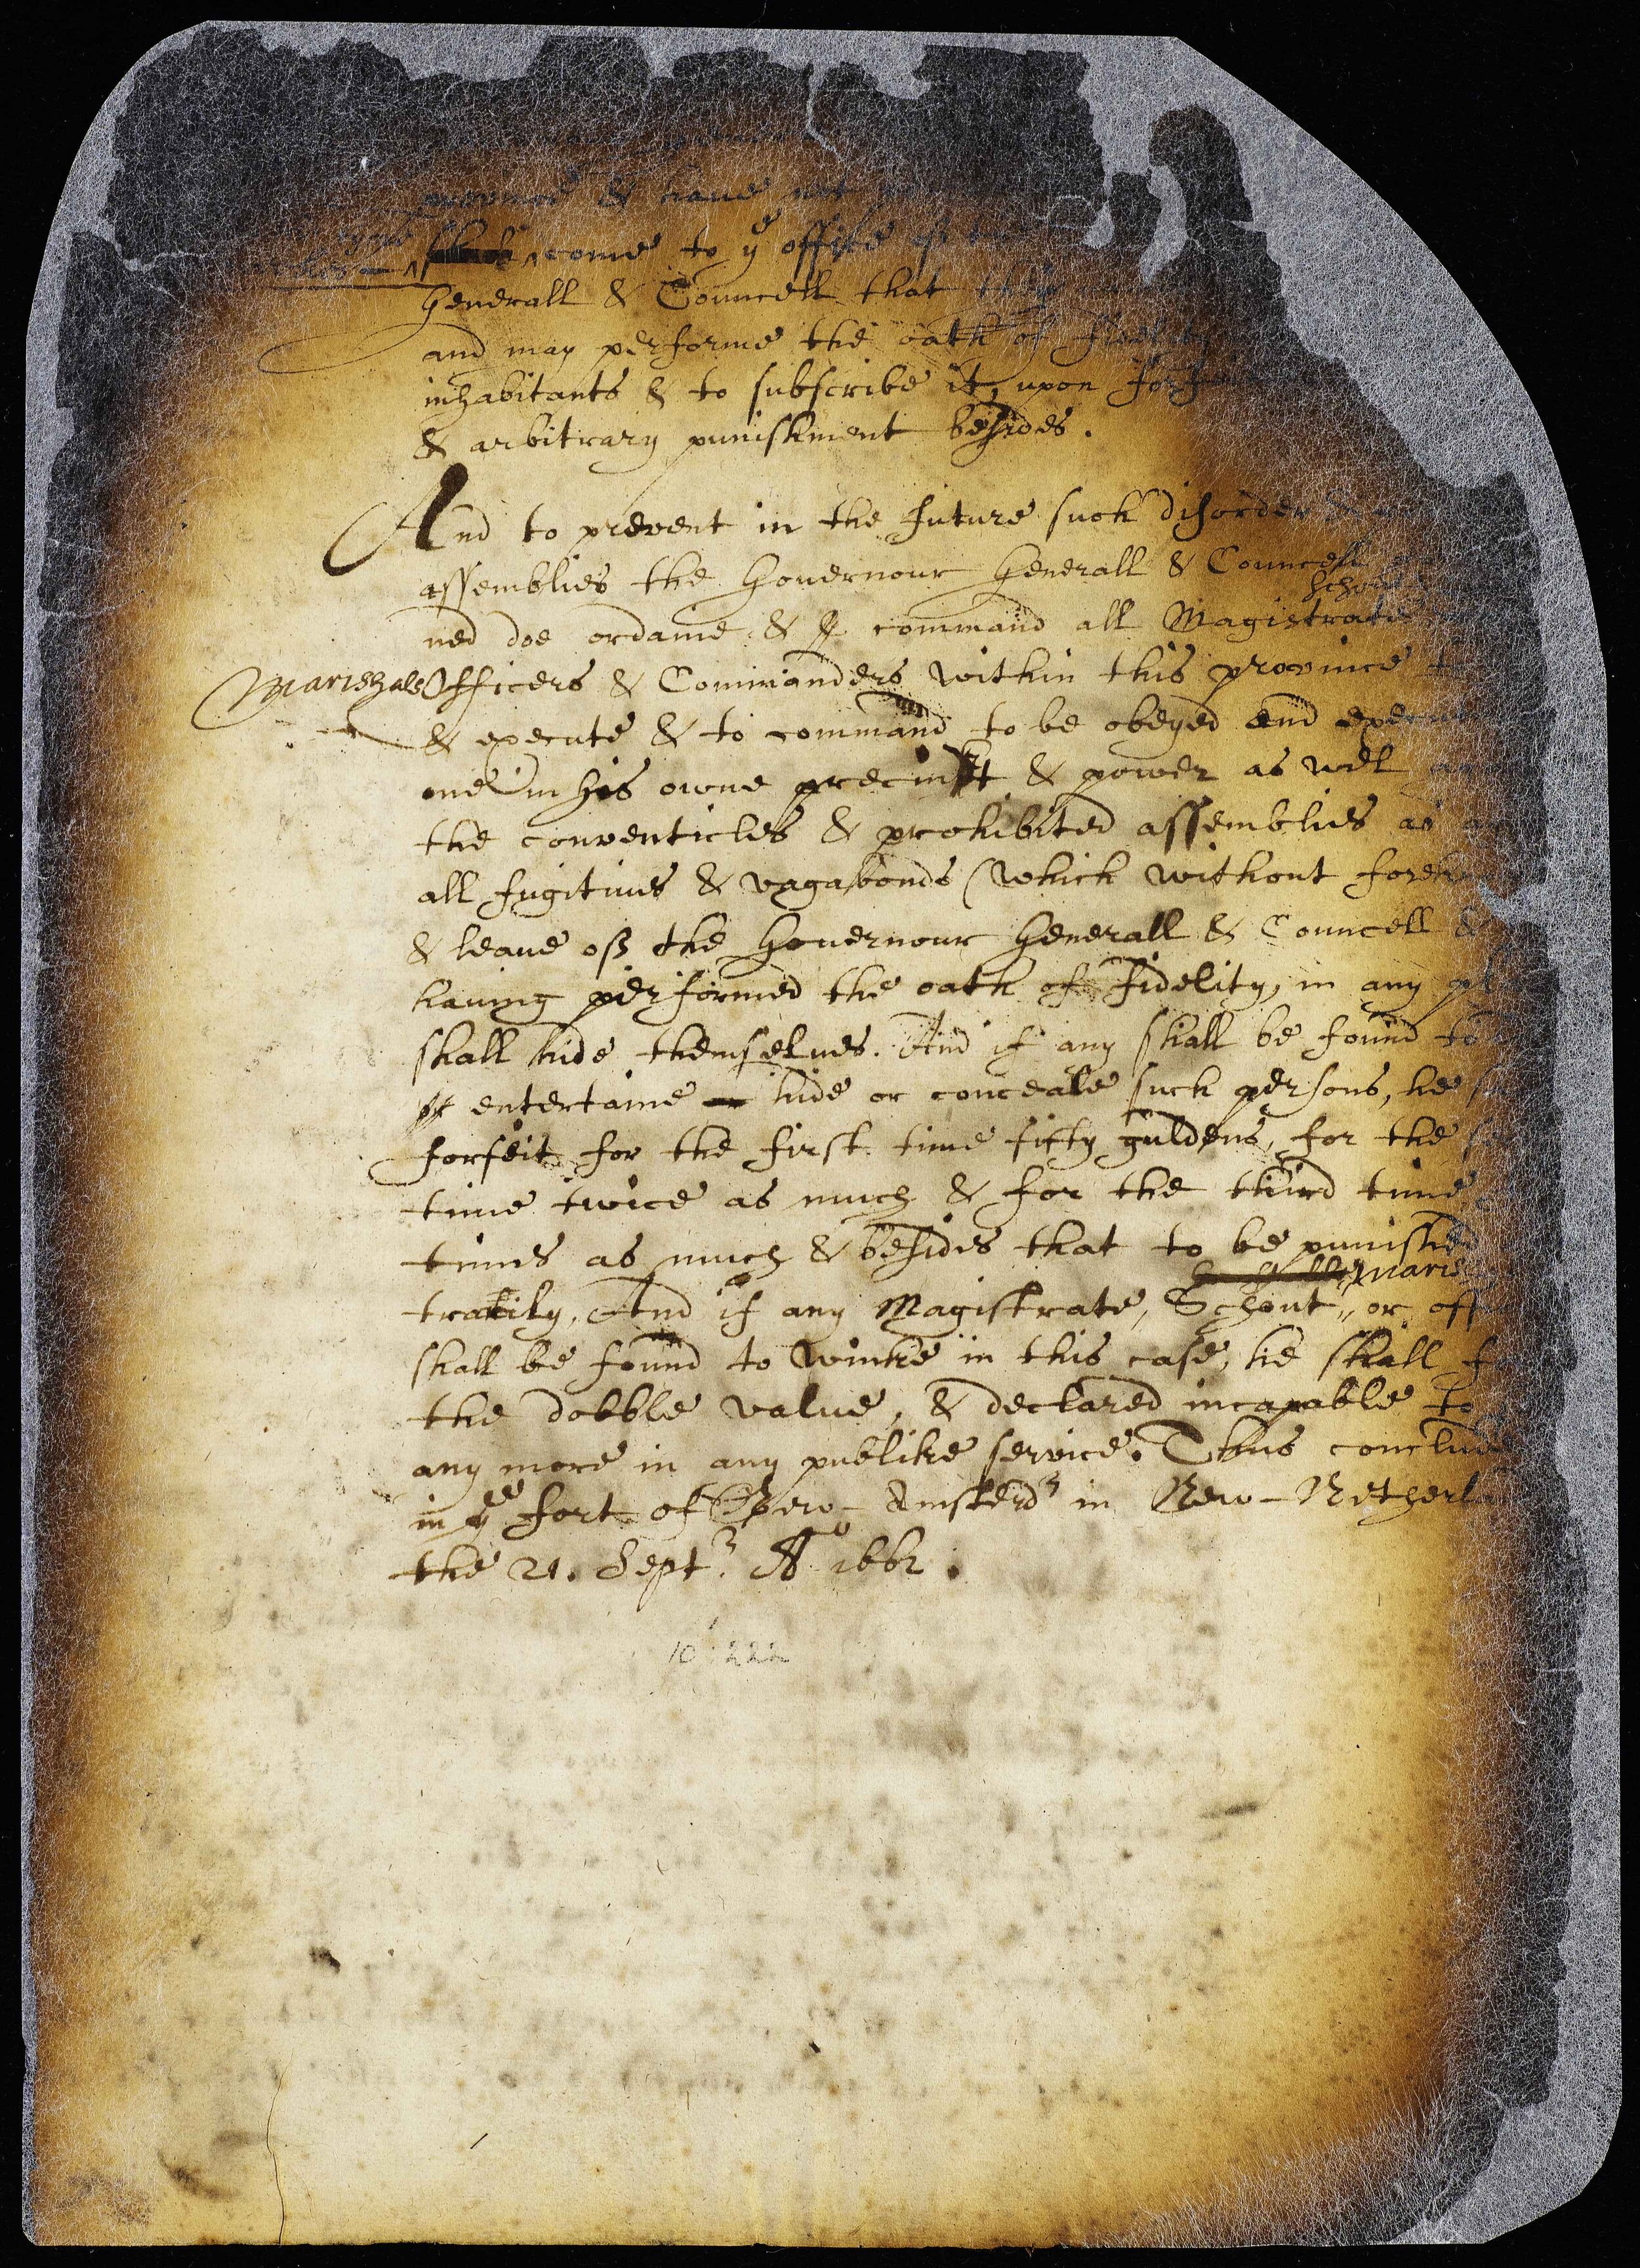 province & haue not
come to yᵉ offike of
Generall & Councell that they
and may performe the oath of fidelity
inhabitants & to subscribe it, upon
& arbitrary punishment besides.
And to prevent in the future such disorder &
assemblies the Governour Generall & Councell
ned doe ordaine & command all Magistrate
Marishals Officers & Commanders within this province
& execute & to command to be obeyed and
one in his owne precinkt & power as wel
the conventicles & prohibited assemblies as
all fugitives & vagabonds (which without
& leave off the Governour Generall & Councell &
having performed the oath of fidelity, in any
shall hide themselves. And if any shall be found to
entertaine hide or conceale such persons, he
forfeit for the first time fifty guldens, for the
time twice as much & for the third time
times as much & besides that to be punished
Maris
tratily, And if any Magistrate, Schout,, or
shall be found to winke in this case, he shall
the dobble value, & declared incapable to
any more in any publike service. Thus conclude
in yᵉ fort of New-Amsterdᵐ in New-Netherla
the 21. Septʳ. Aᵒ 1662.
10:222